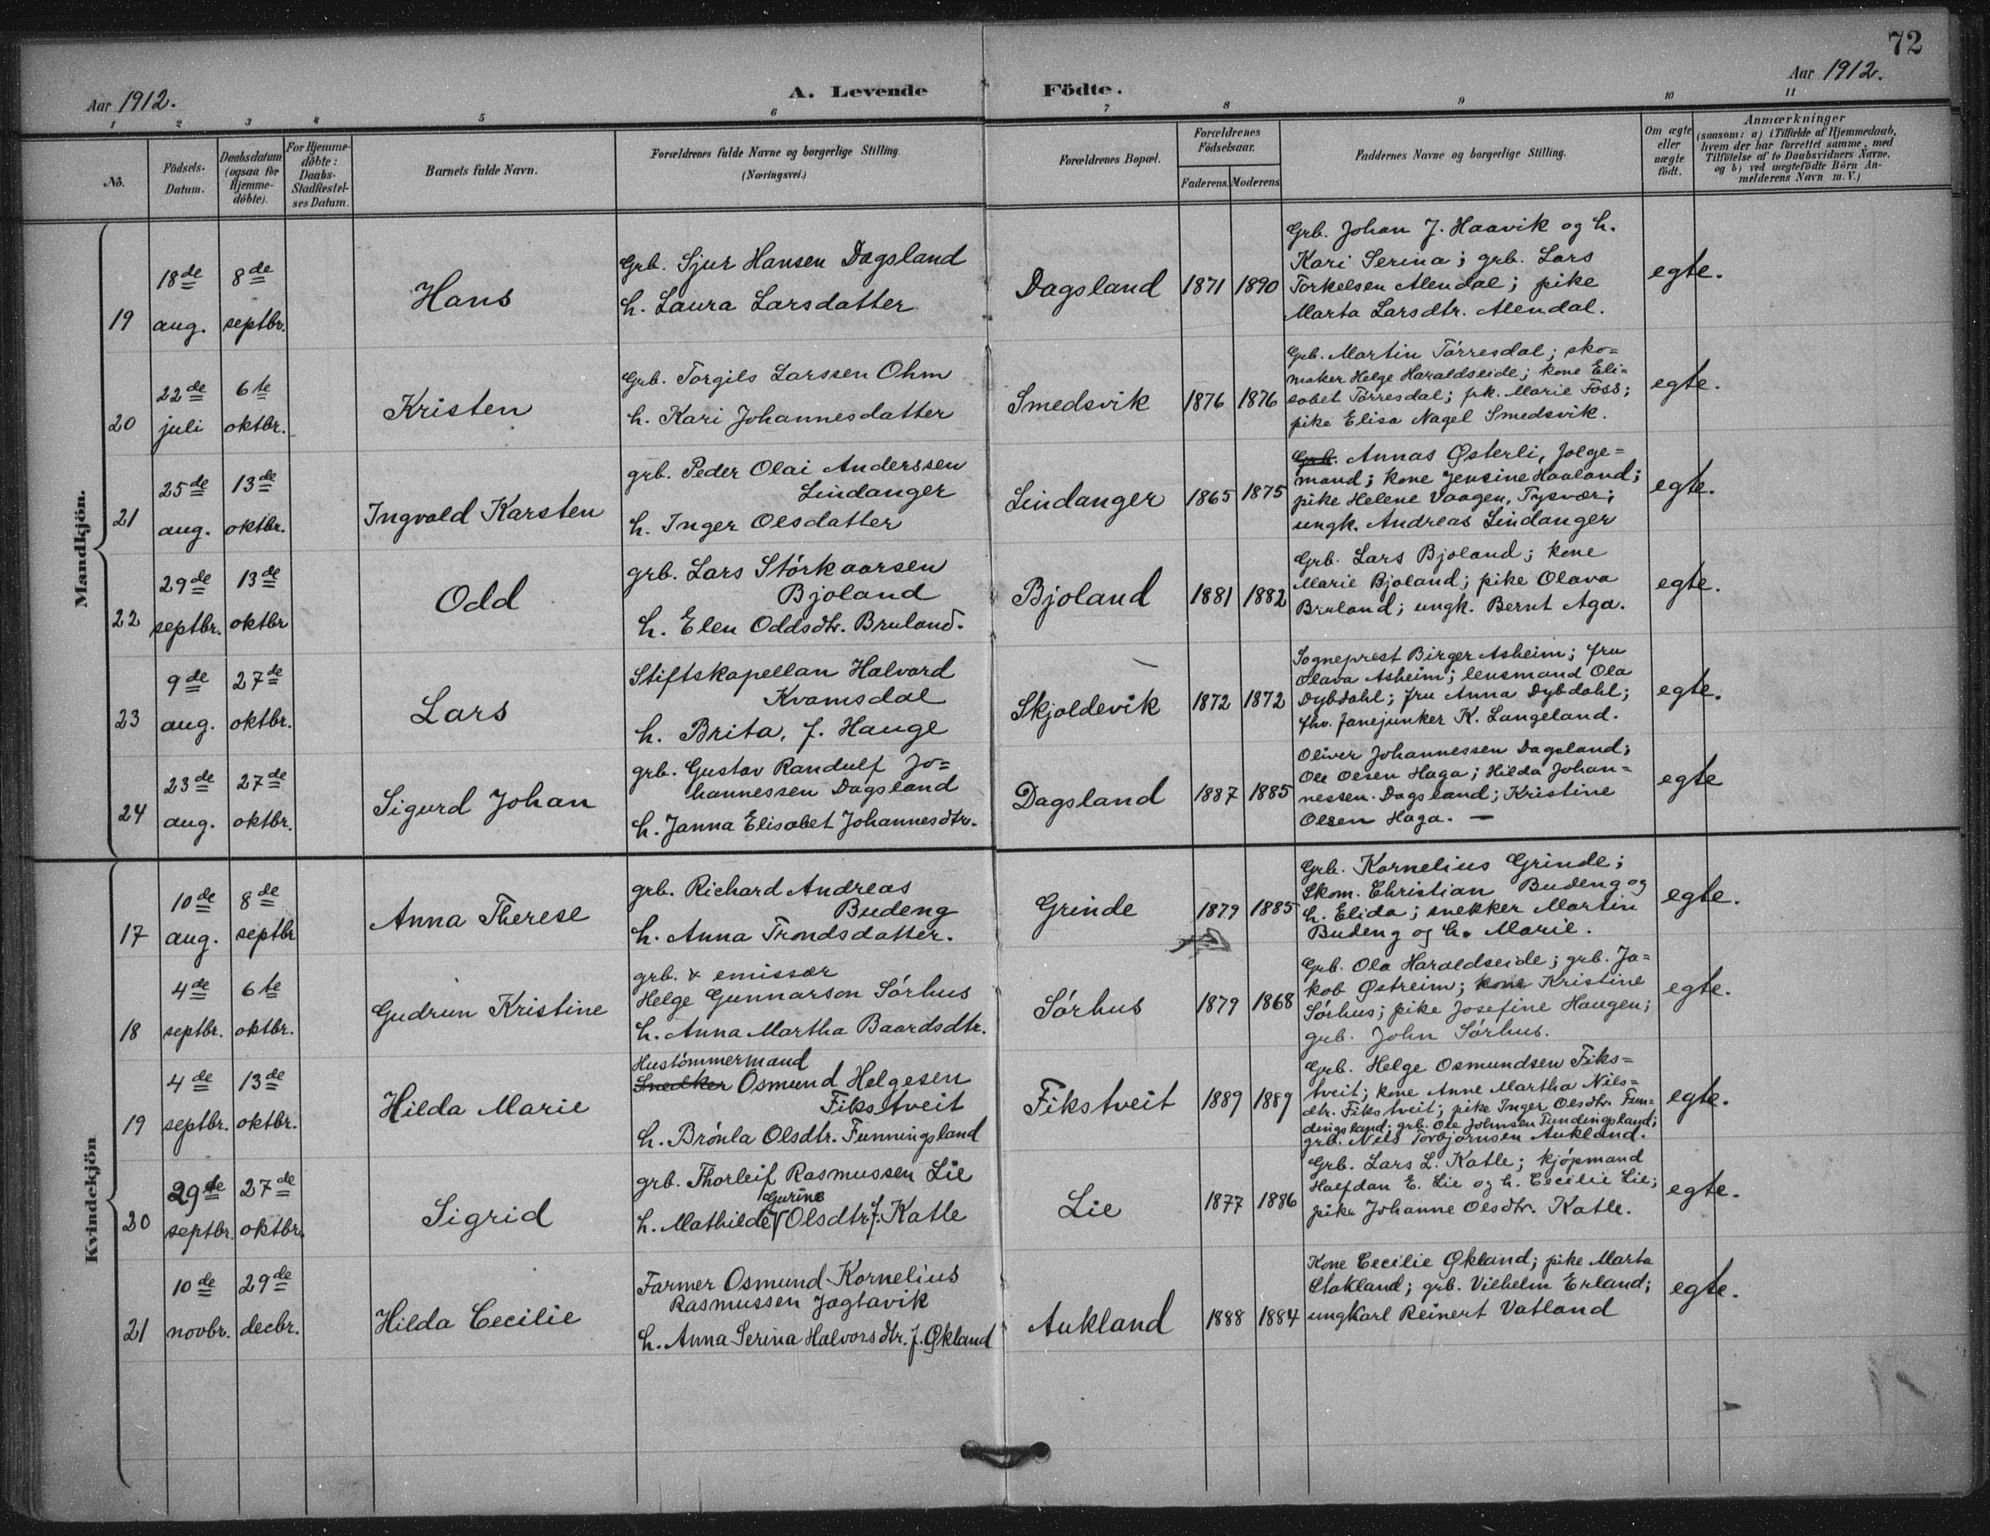 72
Aar 1912.
A. Levende Födte.
Aar 1912.
1 2 3 4 5 6 7 8 9 10 11
No.
Födsels-
Datum.
Daabsdatum
(ogsaa for
Hjemme-
döbte).
For Hjemme-
döbte:
Daabs-
Stadfestel-
ses Datum.
Barnets fulde Navn.
Forældrenes fulde Navne og borgerlige Stilling.
(Næringsvei.)
Forældrenes Bopæl.
Forældrenes
Födselsaar.
Faderens. Moderens
Faddernes Navne og borgerlige Stilling.
Om ægte
eller
uægte
födt.
Anmærkninger
(saasom: a) i Tilfælde af Hjemmedaab,
hvem der har forrettet samme, med
Tilföielse af to Daabsvidners Navne,
og b) ved uægtefödte Börn An-
melderens Navn m. V.)
Mandkjön.
19
18de
aug.
8de
septbr.
Hans
Grb. Sjur Hansen Dagsland
h. Laura Larsdatter
Dagsland
1871 1890
Grb. Johan J. Haavik og h.
Kari Serina; grb. Lars
Torkelsen Alendal; pike
Marta Larsdtr. Alendal.
egte.
20
22de
juli
6te
oktbr.
Kristen
Grb. Torgils Larssen Ohm
h. Kari Johannesdatter
Smedsvik
1876 1876
Grb. Martin Tørresdal; sko-
maker Helge Haraldseide; kone Eli-
sabet Tørresdal; frk. Marie Foss;
pike Elisa Nagel Smedsvik.
egte.
21
25de
aug.
13de
oktbr.
Ingvald Karsten
grb. Peder Olai Anderssen
Lindanger
h. Inger Olsdatter
Lindanger
1865 1875
Grb. Annas Østerli, Jolge-
mand; kone Jensine Haaland;
pike Helene Vaagen, Tysvær;
ungk. Andreas Lindanger
egte.
22
29de
septbr.
13de
oktbr
Odd
grb. Lars Størkaarsen
Bjoland
h. Elen Oddsdtr. Bruland.
Bjoland
1881 1882
Grb. Lars Bjoland; kone
Marie Bjoland; pike Olava
Bruland; ungk. Bernt Aga.
egte.
23
9de
aug.
27de
oktbr.
Lars
Stiftskapellan Halvard
Kvamsdal
h. Brita, f. Hauge
Skjoldevik
1872 1872
Sogneprest Birger Asheim; fru
Olava Asheim; lensmand Ola
Dybdahl; fru Anna Dybdahl;
fhv. fanejunker K. Langeland.
egte.
24
23de
aug.
27de
oktbr.
Sigurd Johan
grb. Gustav Randulf Jo-
hannessen Dagsland
h. Janna Elisabet Johannesdtr.
Dagsland
1887 1885
Oliver Johannessen Dagsland;
Ole Olsen Haga; Hilda Johan-
nessen Dagsland; Kristine
Olsen Haga. —
egte
Kvindekjön
17
10de
aug.
8de
septbr
Anna Therese
grb. Richard Andreas
Budeng
h. Anna Trondsdatter.
Grinde
1879 1885
Grb. Kornelius Grinde;
Skom. Christian Budeng og
h. Elida; snekker Martin
Budeng og h. Marie.
egte.
18
4de
septbr.
6te
oktbr.
Gudrun Kristine
grb. & emissær
Helge Gunnarson Sørhus
h. Anna Martha Baardsdtr.
Sørhus
1879 1868
Grb. Ola Haraldseide; grb. Ja-
kob Østreim; kone Kristine
Sørhus; pike Josefine Haugen;
grb. John Sørhus.
egte.
19
4de
septbr.
13de
oktbr.
Hilda Marie
Hustømmermand
Snedker Osmund Helgesen
Fikstveit
h. Brønla Olsdtr. Funningsland
Fikstveit
1889 1889
Grb. Helge Osmundsen Fiks-
tveit; kone Anne Martha Nils-
dtr. Fikstveit; pike Inger Olsdtr. Fun-
dingsland; grb. Ole Johnsen Fundingsland;
grb. Nils Torbjørnsen Aukland.
egte.
20
29de
septbr.
27de
oktbr.
Sigrid
grb. Thorleif Rasmussen Lie
Gurine
h. Mathilde Olsdtr. f. Katle
Lie
1877 1886
Grb. Lars L. Katle; kjøpmand
Halfdan E. Lie og h. Cecilie Lie;
pike Johanne Olsdtr. Katle.
egte.
21
10de
novbr.
29de
decbr.
Hilda Cecilie
Farmer Osmund Kornelius
Rasmussen Jagtavik
h. Anna Serina Halvorsdtr. f. Økland
Aukland
1888 1884
Kone Cecilie Økland; pike Marta
Stakland; grb. Vilhelm Erland;
ungkarl Reinert Vatland
egte.